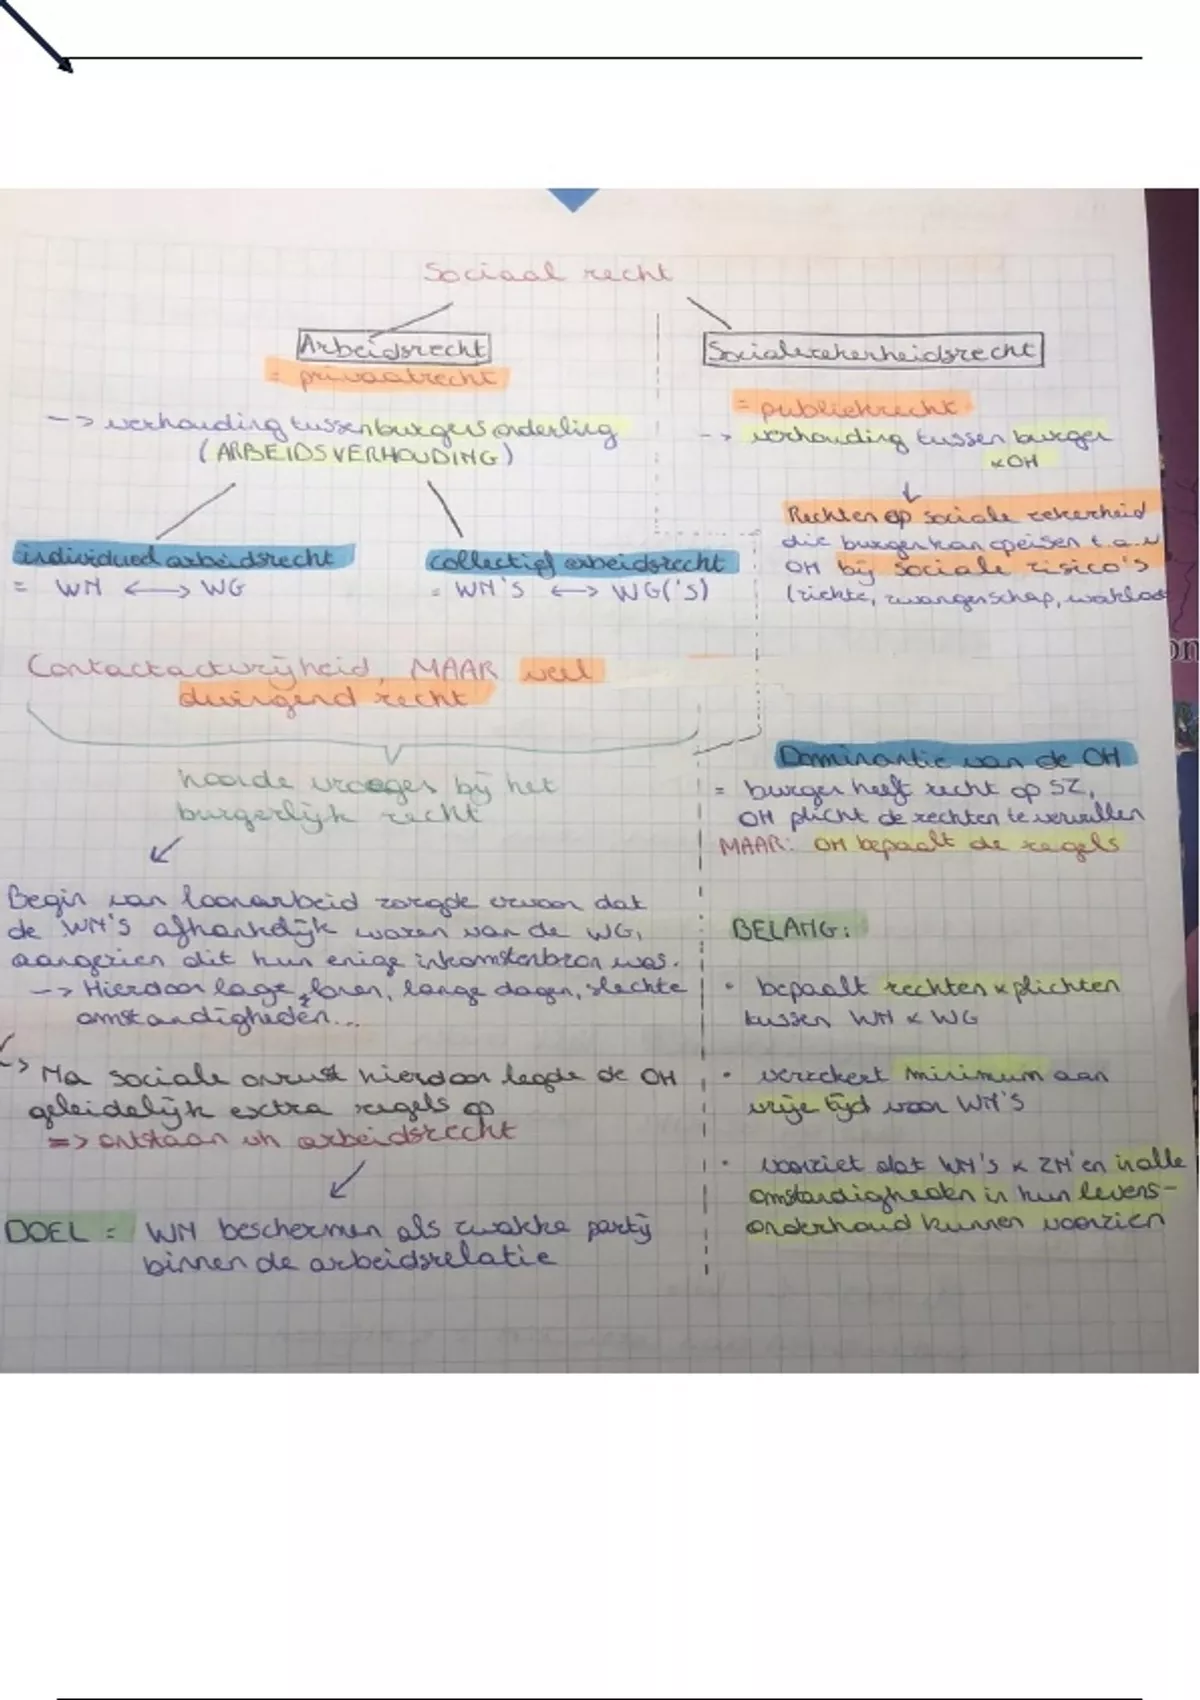 Sociaal recht
Arbeidsrecht
= privaatrecht
--> verhouding tussen burgers onderling
(ARBEIDSVERHOUDING)
individueel arbeidsrecht
= WN <--> WG
collectief arbeidsrecht
= WN'S <--> WG('S)
MAAR veel
dwingend recht
hoorde vroeger bij het
burgerlijk recht
Begin van loonarbeid zorgde ervoor dat
de WN'S afhankelijk waren van de WG,
aangezien dit hun enige inkomstenbron was.
--> Hierdoor lage lonen, lange dagen, slechte
omstandigheden...
--> Na sociale onrust hierdoor legde de OH
geleidelijk extra regels op
=> ontstaan vh arbeidsrecht
DOEL = WN beschermen als zwakke partij
binnen de arbeidsrelatie
Socialezekerheidsrecht
= publiekrecht
--> verhouding tussen burger
x OH
Rechten op sociale zekerheid
die burger kan opeisen t.a.v
OH bij sociale risico's
(ziekte, zwangerschap,
Dominantie van de OH
= burger heeft recht op SZ,
OH plicht de rechten te vervullen
MAAR: OH bepaalt de regels
BELANG:
• bepaalt rechten x plichten
tussen WN x WG
• verzekert minimum aan
vrije tijd voor WN'S
• voorziet dat WN'S x ZN'en in alle
omstandigheden in hun levens-
onderhoud kunnen voorzien
on